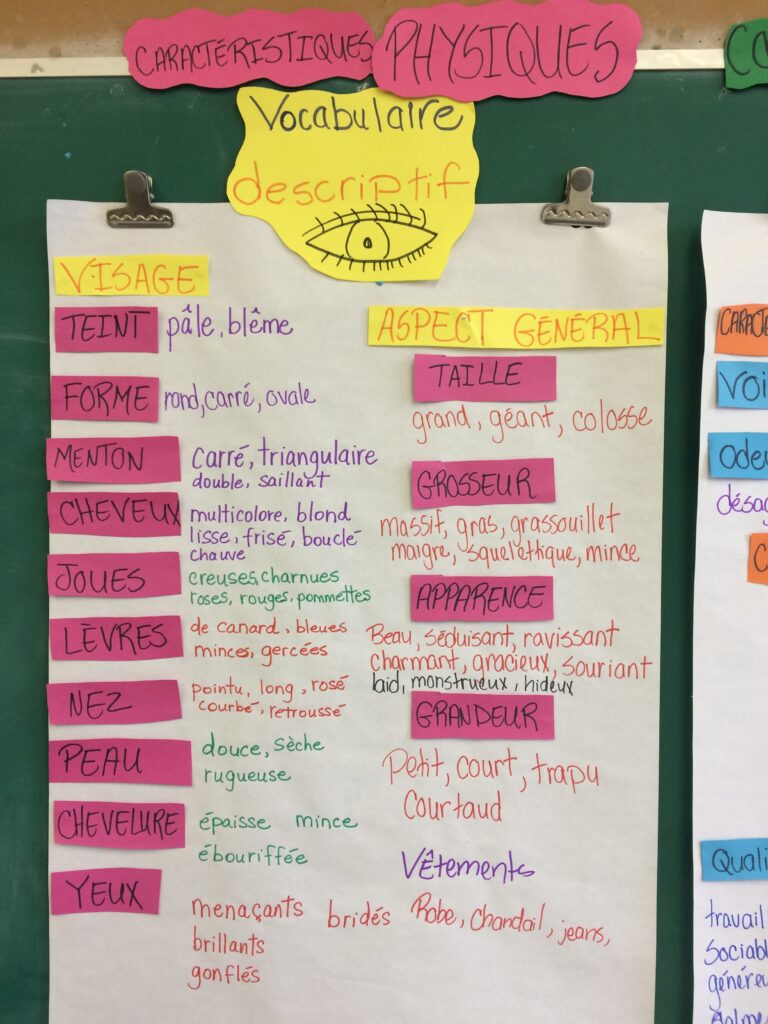 CARACTÉRISTIQUES PHYSIQUES
Vocabulaire
descriptif
VISAGE
TEINT pâle, blême
FORME rond, carré, ovale
MENTON carré, triangulaire
double, saillant
CHEVEUX multicolore, blond
lisse, frisé, bouclé
chauve
JOUES creuses, charnues
roses, rouges, pommettes
LÈVRES de canard, bleues
minces, gercées
NEZ pointu, long, rosé
courbé, retroussé
PEAU douce, sèche
rugueuse
CHEVELURE épaisse mince
ébouriffée
YEUX menaçants bridés
brillants
gonflés
ASPECT GÉNÉRAL
TAILLE
grand, géant, colosse
GROSSEUR
massif, gras, grassouillet
maigre, squeléttique, mince
APPARENCE
Beau, séduisant, ravissant
charmant, gracieux, souriant
laid, monstrueux, hideux
GRANDEUR
Petit, court, trapu
Courtaud
Vêtements
Robe, Chandail, jeans,